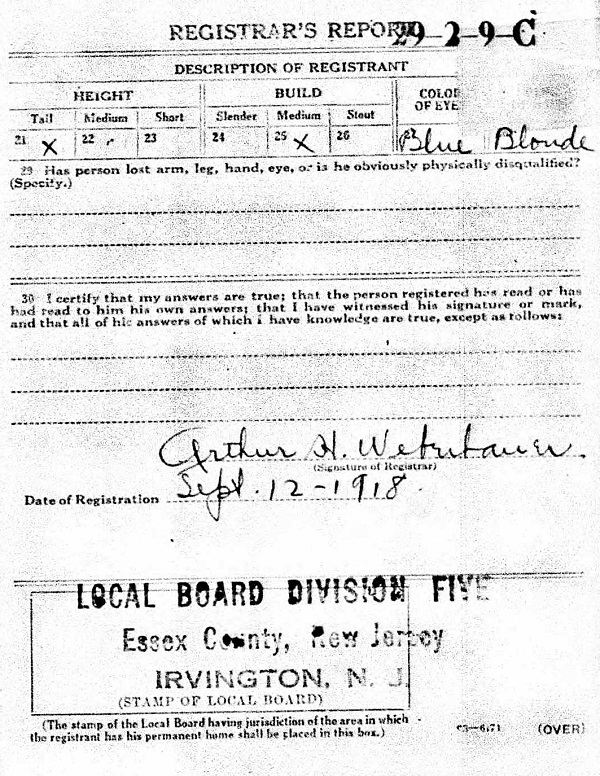 REGISTRAR'S REPORT 29-2-9-C
DESCRIPTION OF REGISTRANT
HEIGHT BUILD COLOR OF EYE
Tall Medium Short Slender Medium Stout
21 X 22 23 24 25 X 26 27 Blue Blonde
29 Has person lost arm, leg, hand, eye, or is he obviously physically disqualified?
(Specify.)
30 I certify that my answers are true; that the person registered has read or has
had read to him his own answers; that I have witnessed his signature or mark,
and that all of his answers of which I have knowledge are true, except as follows:
Arthur H.
(Signature of Registrar)
Date of Registration Sept. 12-1918.
LOCAL BOARD DIVISION FIVE
Essex County, New Jersey
IRVINGTON, N. J.
(STAMP OF LOCAL BOARD)
(The stamp of the Local Board having jurisdiction of the area in which
the registrant has his permanent home shall be placed in this box.)
(OVER)